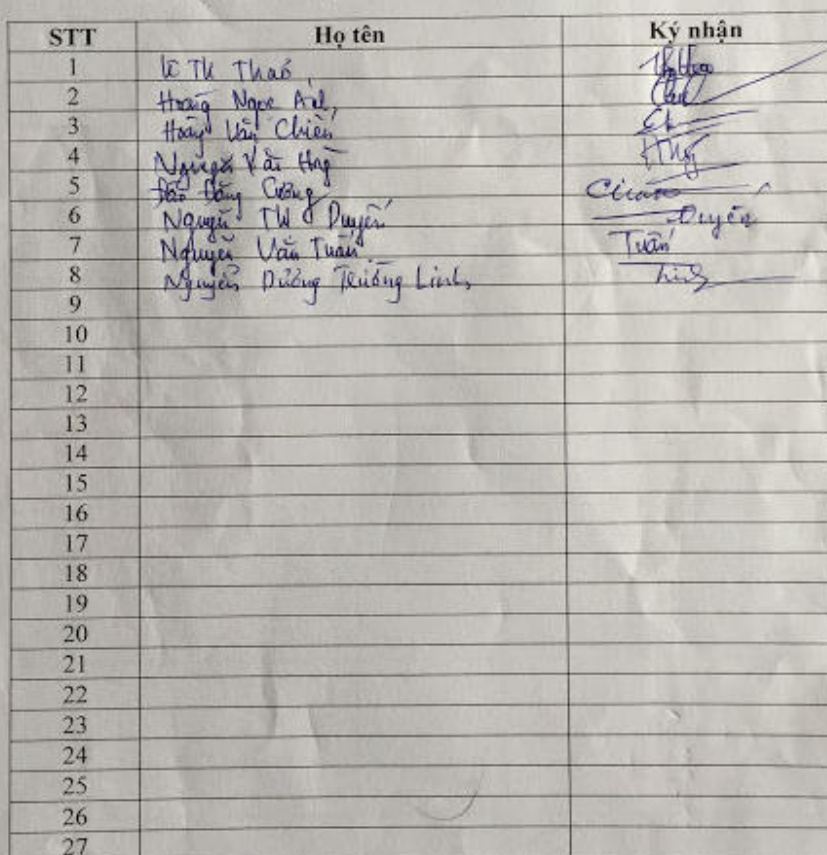 STT Họ tên Ký nhận
1 Thảo
2 Hoàng Ngọc Anh
3 Hoàng Văn Chiến
4 Nguyễn Văn
5 Đào Đăng Cường
6 Nguyễn Thị Duyến Duyến
7 Nguyễn Văn Tuấn Tuấn
8 Nguyễn Dương Trường Linh Linh
9
10
11
12
13
14
15
16
17
18
19
20
21
22
23
24
25
26
27